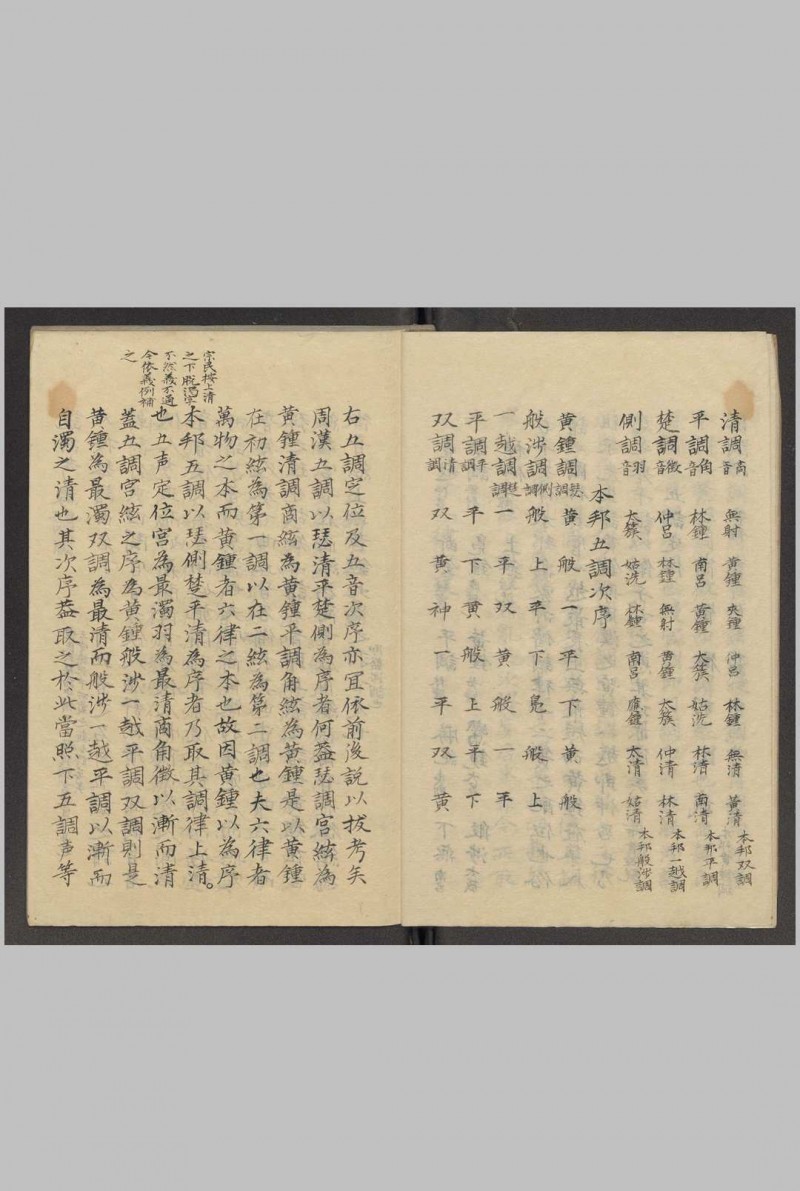 清調商音 無射 黄鍾 夾鍾 仲呂 林鍾 無清 黄清 本邦双調
平調角音 林鍾 南呂 黄鍾 太簇 姑洗 林清 南清 本邦平調
楚調徴音 仲呂 林鍾 無射 黄鍾 太簇 仲清 林清 本邦一越調
側調羽音 太簇 姑洗 林鍾 南呂 應鍾 太清 姑清 本邦般渉調
本邦五調次序
黄鍾調瑟調 黄 般 一 平 下 黄 般
般渉調側調 般 上 平 下 鳬 般 上
一越調楚調 一 平 双 黄 般 一 平
平調平調 平 下 黄 般 上 平 下
双調清調 双 黄 神 一 平 双 黄
右五調定位及五音次序亦冝依前後説以拔考矣
周漢五調以瑟清平楚側為序者何蓋瑟調宮絃為
黄鍾清調商絃為黄鍾平調角絃為黄鍾是以黄鍾
在初絃為第一調以在二絃為第二調也夫六律者
萬物之本而黄鍾者六律之本也故因黄鍾以為序
本邦五調以瑟側楚平清為序者乃取其調律上清。
也五声定位宮為最濁羽為最清商角徴以漸而清
蓋五調宮絃之序為黄鍾般渉一越平調双調則是
黄鍾為最濁双調為最清而般渉一越平調以漸而
自濁之清也其次序蓋取之於此當照下五調声等
宗民按上清
之下脱濁字
不然義不通
今依義例補
之